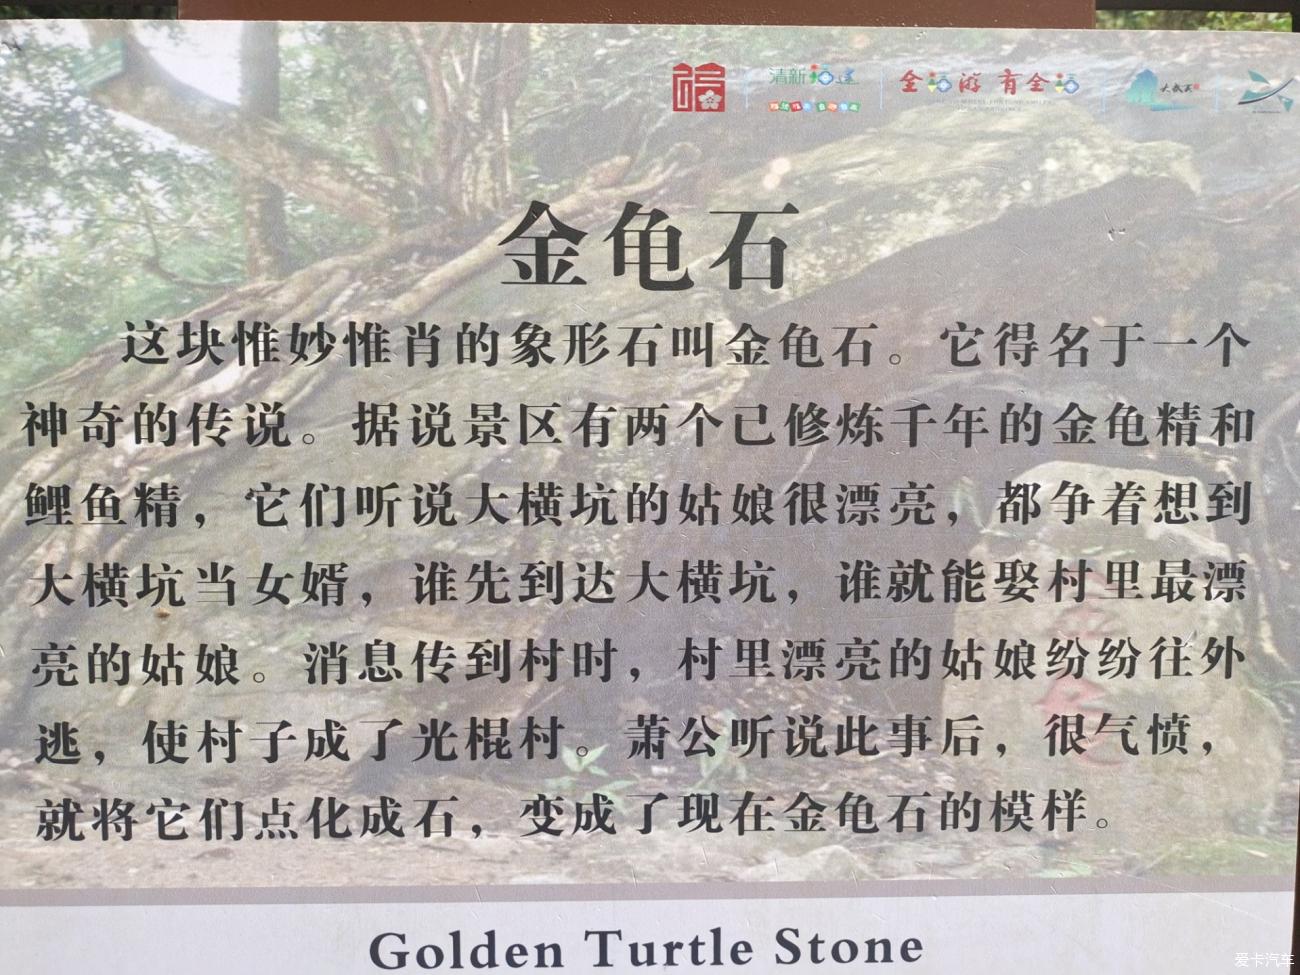 福
清新福建
全福游 有全福
大武夷
金龟石
这块惟妙惟肖的象形石叫金龟石。它得名于一个
神奇的传说。据说景区有两个已修炼千年的金龟精和
鲤鱼精，它们听说大横坑的姑娘很漂亮，都争着想到
大横坑当女婿，谁先到达大横坑，谁就能娶村里最漂
亮的姑娘。消息传到村时，村里漂亮的姑娘纷纷往外
逃，使村子成了光棍村。萧公听说此事后，很气愤，
就将它们点化成石，变成了现在金龟石的模样。
Golden Turtle Stone
爱卡汽车